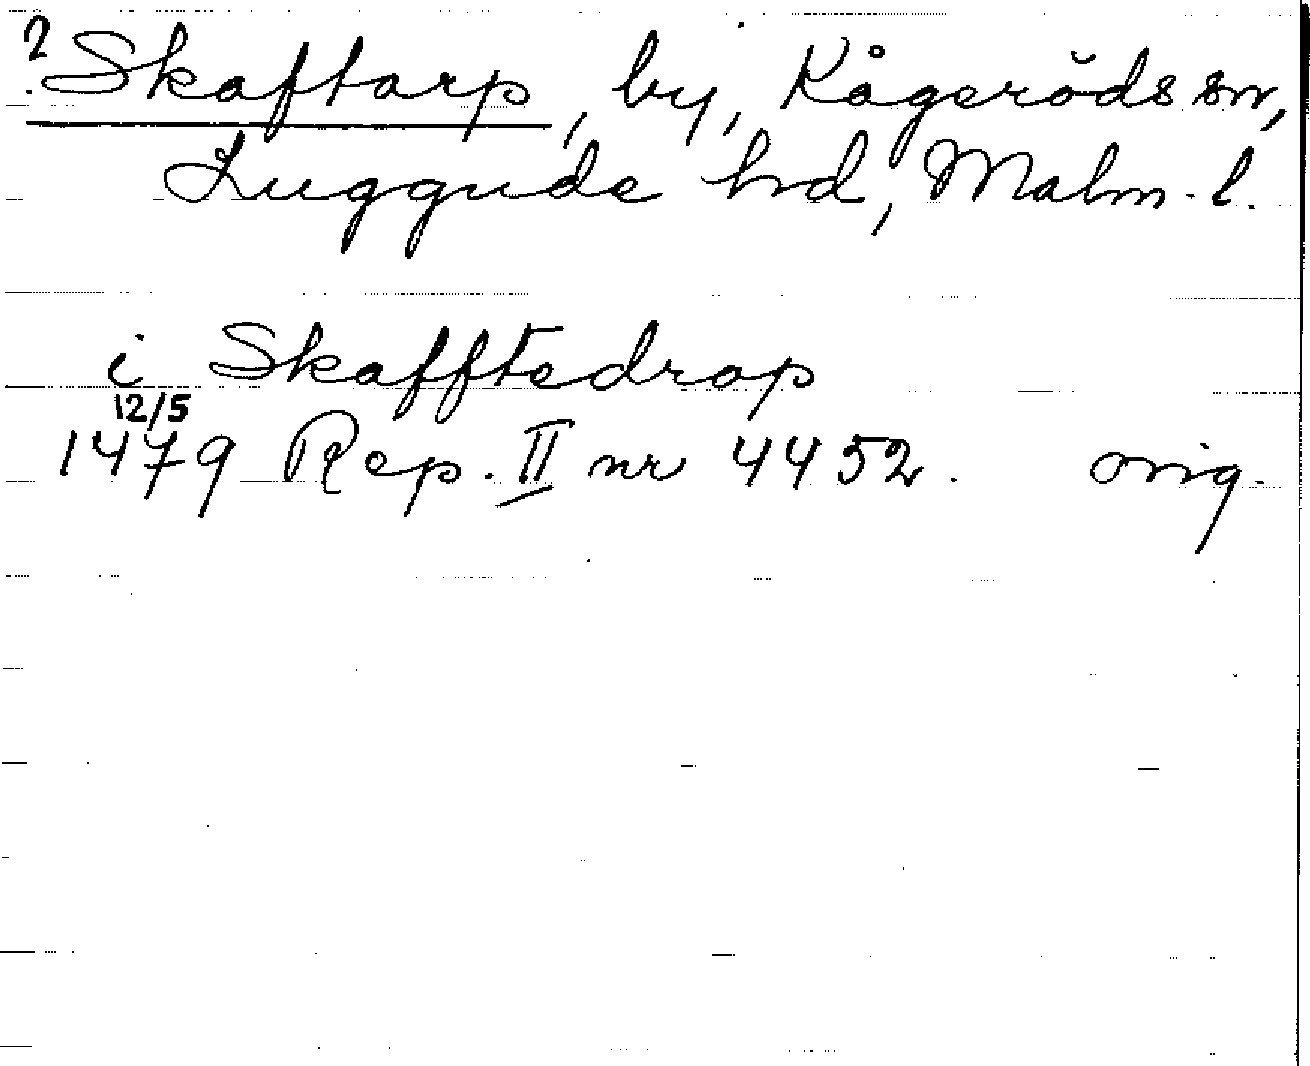 ? Skaftarp, by, Kågeröds sn,
Luggude hd, Malm. l.
i Skafftedrop
12/5
1479 Rep. II nr 4452. orig.